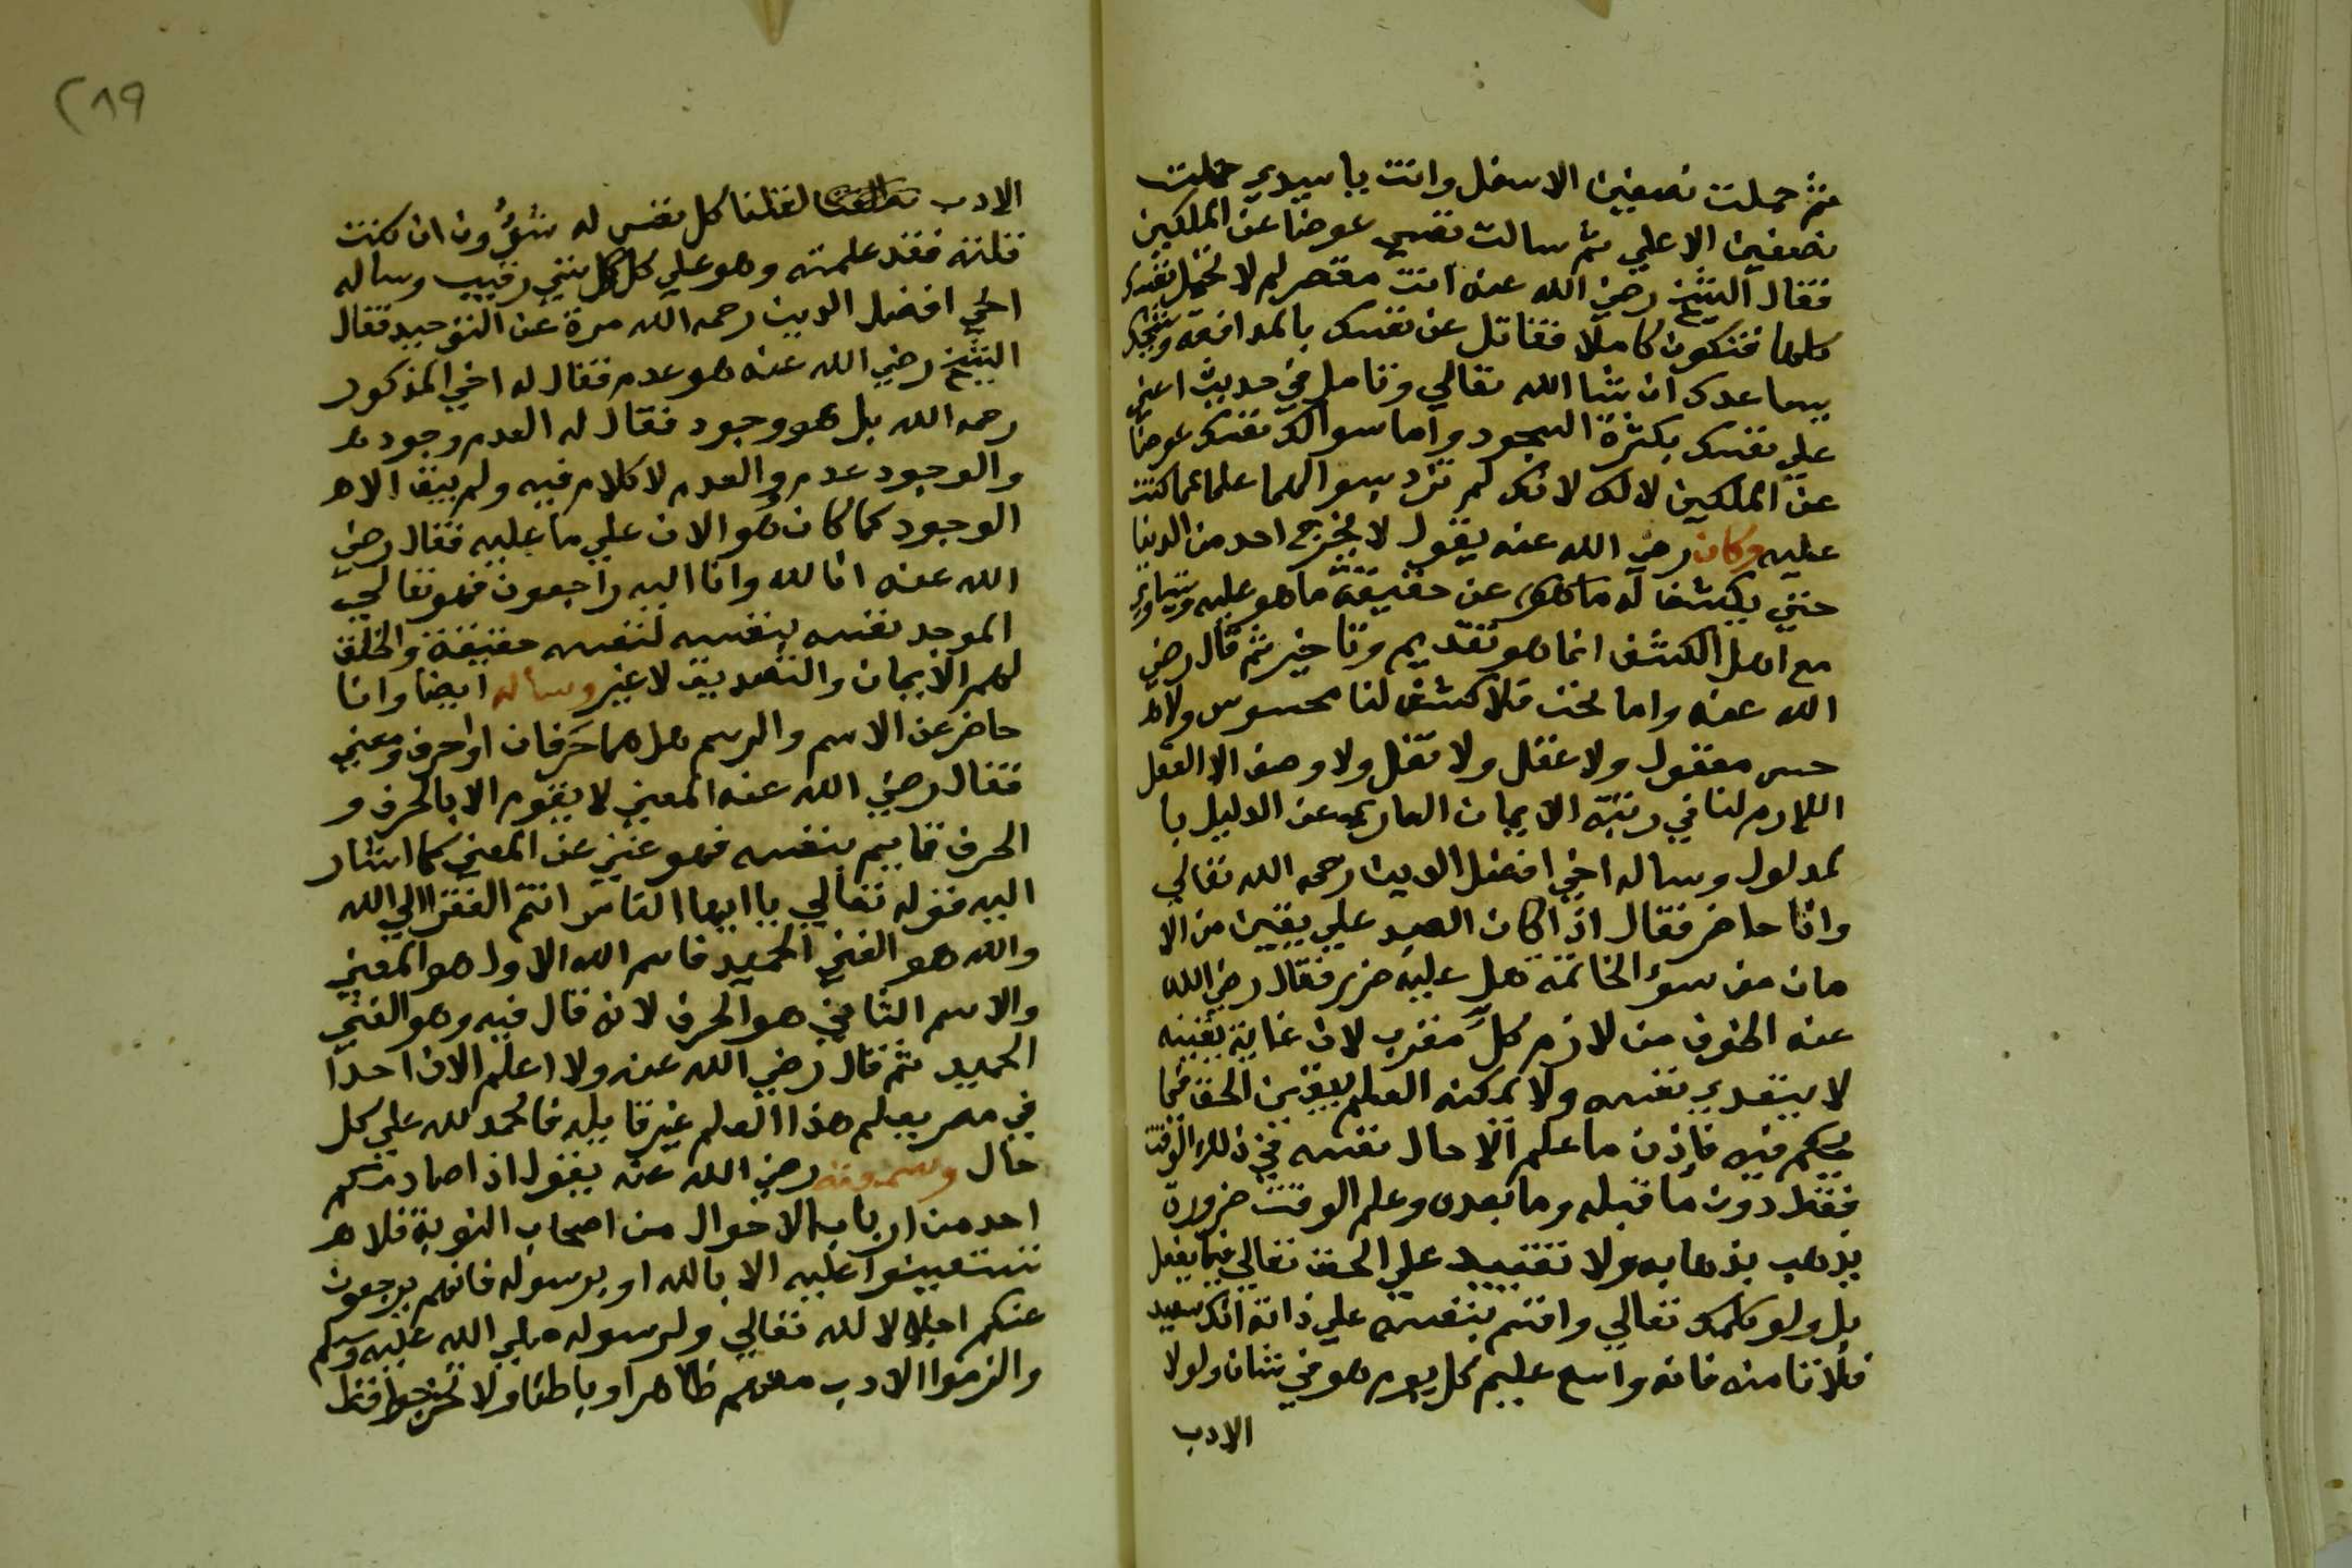 ثم حملت نصفين الاسفل وانت يا سيدي حملت
نصفين الاعلي ثم سالت نفسي عوضا عن الملكين
فقال الشيخ رضي الله عنه انت مقصر لم لا تحمل نفسك
كلها فتكون كاملا فقاتل عن نفسك بالمدافعة وشيخك
يساعدك ان شا الله تعالي وتامل في حديث اعني
علي نفسك بكثرة السجود واما سوالك نفسك عوضا
عن الملكين لا لك لانك لم تزد بسوالهما علما عما كنت
عليه وكان رضي الله عنه يقول لا يخرج احد من الدنيا
حتي يكشف له ما هو عن حقيقة ما هو عليه ويتساوي
مع اهل الكشف انما هو تقديم وتاخير ثم قال رضي
الله عنه واما نحن فلا كشف لنا محسوس ولا
حس معقول ولا عقل ولا نقل ولا وصف الا العقل
اللازم لنا في رتبة الايمان العاري عن الدليل با
لمدلول وساله اخي افضل الدين رحمه الله تعالي
وانا حاضر فقال اذا كان العبد علي يقين من الا
مان من سوء الخاتمة هل عليه ضرر فقال رضي الله
عنه الخوف من لازم كل مقرب لان غاية يقينه
لا يتعدي نفسه ولا يمكنه العلم بيقين الحق فيما
يحكم فيه فاذن ما علم الا حال نفسه في ذلك الوقت
فقط دون ما قبله وما بعده وعلم الوقت ضرورة
يذهب بذهابه ولا تقييد علي الحق تعالي فيما يفعل
بل ولو كلمك تعالي واقسم بنفسه علي ذاته انك سعيد
فلا تامنه فانه واسع عليم كل يوم هو في شان ولولا
الادب
٢٨٩
الادب لقلنا كل نفس له شؤون ان كنت
قلته فقد علمته وهو علي كل كل شي رقيب وساله
اخي افضل الدين رحمه الله مرة عن التوحيد فقال
الشيخ رضي الله عنه هو عدم فقال له اخي المذكور
رحمه الله بل هو وجود فقال له العدم وجود
والوجود عدم والعدم لا كلام فيه ولم يبق الا
الوجود كما كان هو الان علي ما عليه فقال رضي
الله عنه انا لله وانا اليه راجعون فهو تعالي
الموجد نفسه بنفسه لنفسه حقيقة والخلق
لهم الايمان والتصديق لا غير وساله ايضا وانا
حاضر عن الاسم والرسم هل هما حرفان او حرف ومعني
فقال رضي الله عنه المعني لا يقوم الا بالحرف و
الحرف قايم بنفسه فهو غني عن المعني كما اشار
اليه قوله تعالي يا ايها الناس انتم الفقرا الي الله
والله هو الغني الحميد فاسم الله الاول هو المعني
والاسم الثاني هو الحرف لانه قال فيه وهو الغني
الحميد ثم قال رضي الله عنه ولا اعلم الان احدا
في مصر يعلم هذا العلم غير قايله فالحمد لله علي كل
حال وسمعته رضي الله عنه يقول اذا صادمكم
احد من ارباب الاحوال من اصحاب النوبة فلا
تستعينوا عليه الا بالله او برسوله فانهم يرجعون
عنكم اجلالا لله تعالي ولرسوله صلي الله عليه وسلم
والزموا الادب معهم ظاهرا وباطنا ولا تخرجوا قط